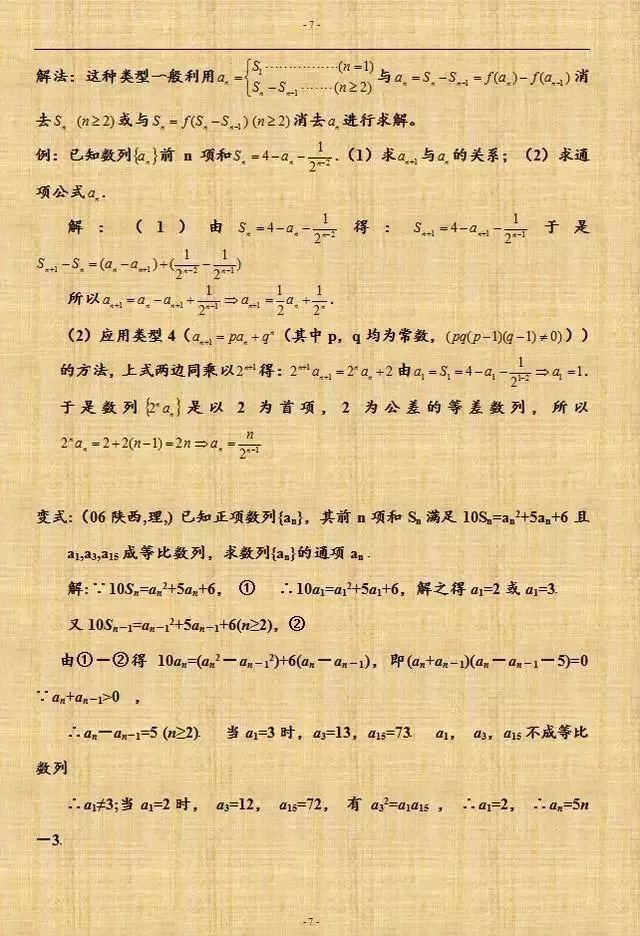 - 7 -
解法：这种类型一般利用$a_n=\begin{cases}S_1\cdots\cdots\cdots\cdots\cdots(n=1)\\S_n-S_{n-1}\cdots\cdots(n\geq2)\end{cases}$与$a_n=S_n-S_{n-1}=f(a_n)-f(a_{n-1})$消
去$S_n$ $(n\geq2)$或与$S_n=f(S_n-S_{n-1})$ $(n\geq2)$消去$a_n$进行求解。
例：已知数列$\{a_n\}$前 n 项和$S_n=4-a_n-\frac{1}{2^{n-2}}$.（1）求$a_{n+1}$与$a_n$的关系；（2）求通
项公式$a_n$.
解：（1）由$S_n=4-a_n-\frac{1}{2^{n-2}}$得：$S_{n+1}=4-a_{n+1}-\frac{1}{2^{n-1}}$于是
$S_{n+1}-S_n=(a_n-a_{n+1})+(\frac{1}{2^{n-2}}-\frac{1}{2^{n-1}})$
所以$a_{n+1}=a_n-a_{n+1}+\frac{1}{2^{n-1}}\Rightarrow a_{n+1}=\frac{1}{2}a_n+\frac{1}{2^n}$.
（2）应用类型 4（$a_{n+1}=pa_n+q^n$（其中 p，q 均为常数，$(pq(p-1)(q-1)\neq0)$））
的方法，上式两边同乘以$2^{n+1}$得：$2^{n+1}a_{n+1}=2^na_n+2$由$a_1=S_1=4-a_1-\frac{1}{2^{1-2}}\Rightarrow a_1=1$.
于是数列$\{2^na_n\}$是以 2 为首项，2 为公差的等差数列，所以
$2^na_n=2+2(n-1)=2n\Rightarrow a_n=\frac{n}{2^{n-1}}$
变式:（06 陕西,理,) 已知正项数列{aₙ}，其前 n 项和 Sₙ 满足 10Sₙ=aₙ²+5aₙ+6 且
a₁,a₃,a₁₅ 成等比数列，求数列{aₙ}的通项 aₙ .
解: ∵10Sₙ=aₙ²+5aₙ+6， ① ∴10a₁=a₁²+5a₁+6，解之得 a₁=2 或 a₁=3.
又 10Sₙ₋₁=aₙ₋₁²+5aₙ₋₁+6(n≥2)，②
由①－②得 10aₙ=(aₙ²－aₙ₋₁²)+6(aₙ－aₙ₋₁)，即(aₙ+aₙ₋₁)(aₙ－aₙ₋₁－5)=0
∵aₙ+aₙ₋₁>0 ，
∴aₙ－aₙ₋₁=5 (n≥2). 当 a₁=3 时，a₃=13，a₁₅=73. a₁， a₃，a₁₅ 不成等比
数列
∴a₁≠3;当 a₁=2 时， a₃=12， a₁₅=72， 有 a₃²=a₁a₁₅ ， ∴a₁=2， ∴aₙ=5n
－3.
- 7 -